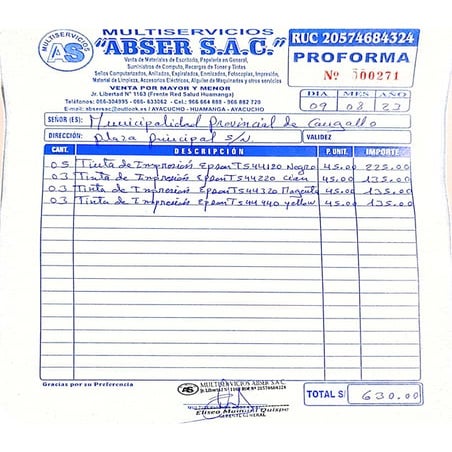 MULTISERVICIOS
AS "ABSER S.A.C."
Venta de Materiales de Escritorio, Papelería en General,
Suministros de Computo, Recargas de Toner y Tintas.
Sellos Computarizados, Anillados, Espiralados, Enmicados, Fotocopias, Impresión,
Material de Limpieza, Accesorios, Alquiler de Maquinarias y Ferretería en General
VENTA POR MAYOR Y MENOR
Jr. Libertad N° 1163 (Frente Red Salud Huamanga)
Teléfonos: 066-304935 - 066-633062 - Cel.: 966 664 668 - 966 882 720
E-mail: absersac@outlook.es / AYACUCHO - HUAMANGA - AYACUCHO
RUC 20574684324
PROFORMA
N° 500271
DIA MES AÑO
09 08 23
SEÑOR (ES): Municipalidad Provincial de Cangallo
DIRECCIÓN: Plaza principal S/N VALIDEZ
CANT. DESCRIPCIÓN P. UNIT. IMPORTE
05 Tinta de Impresión Epson T544120 Negro 45.00 225.00
03 Tinta de Impresión Epson T544220 Cian 45.00 135.00
03 Tinta de Impresión Epson T544320 Magenta 45.00 135.00
03 Tinta de Impresión Epson T544440 yellow 45.00 135.00
Gracias por su Preferencia
AS MULTISERVICIOS ABSER S.A.C.
Jr. Libertad N° 1163 RUC N° 20574684324
Eliseo Quispe
GERENTE GENERAL
TOTAL S/ 630.00